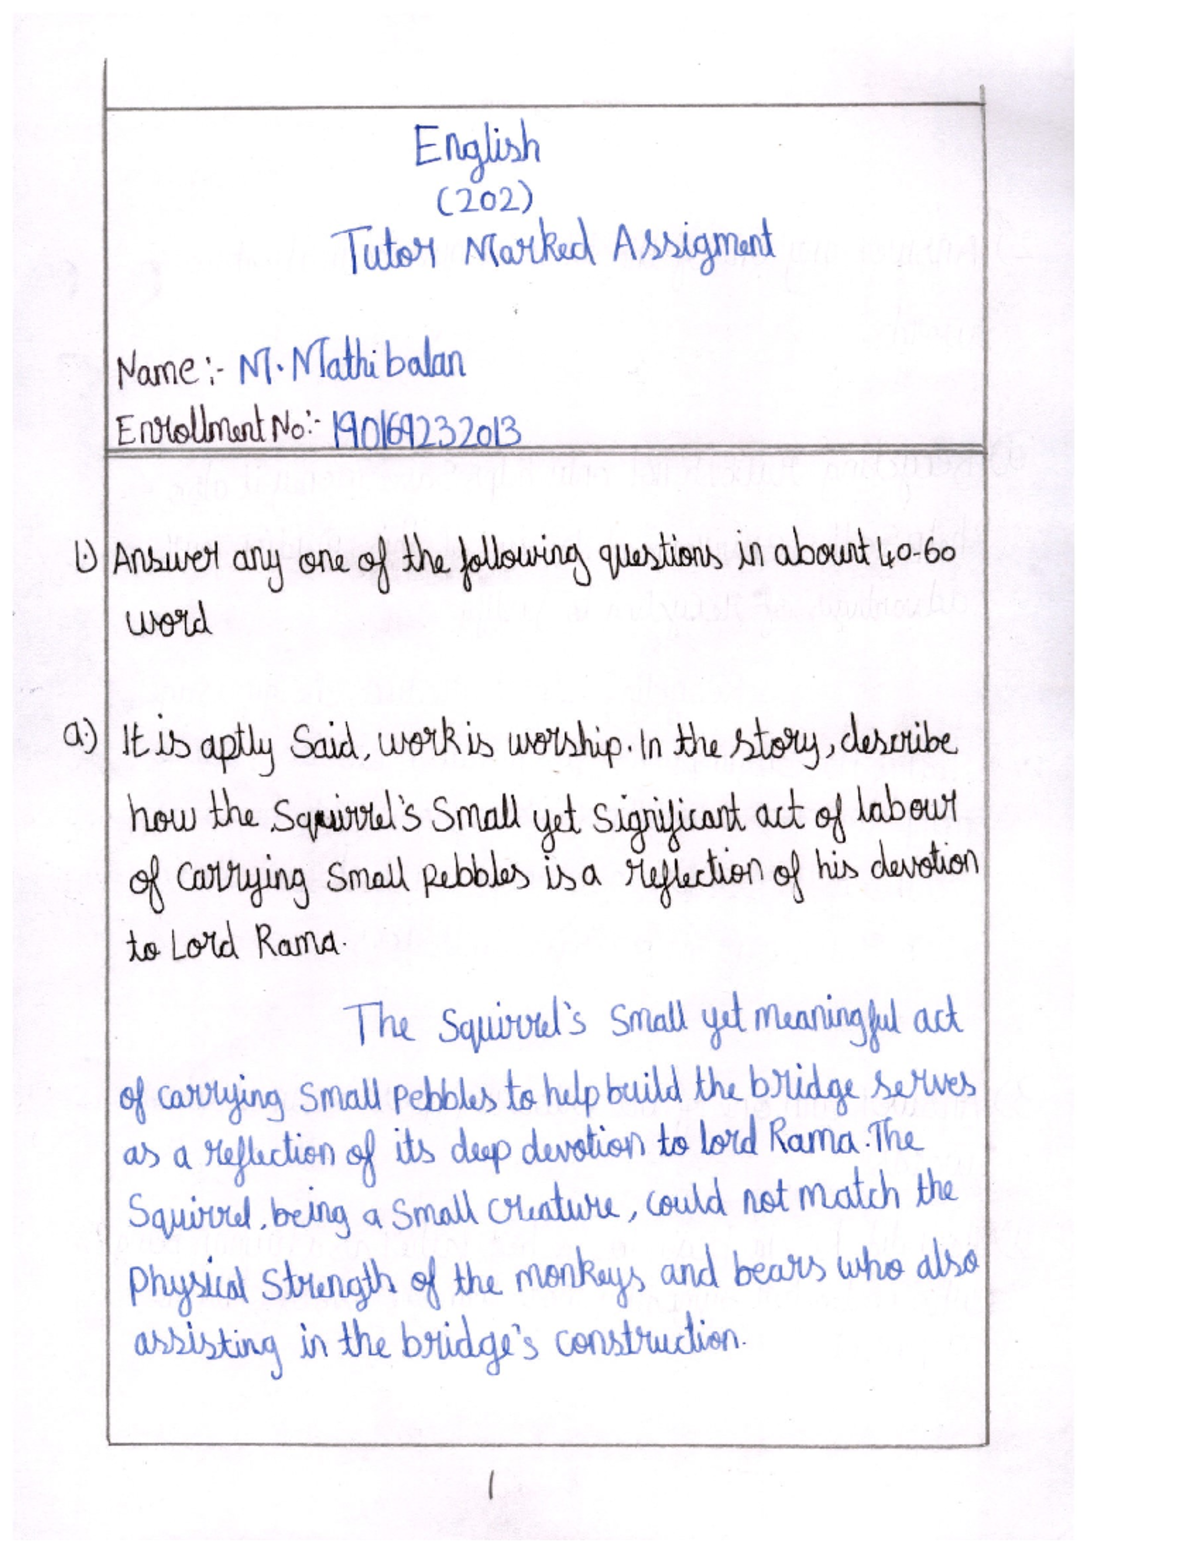 English
(202)
Tutor Marked Assigment
Name:- M. Mathibalan
Enrollment No:- 190169232013
1.) Answer any one of the following questions in abount 40-60
word
a.) It is aptly Said, work is worship. In the story, describe
how the Squirrel's Small yet significant act of labour
of Carrying Small Pebbles is a reflection of his devotion
to Lord Rama.
The Squirrel's Small yet meaningful act
of carrying Small Pebbles to help build the bridge serves
as a reflection of its deep devotion to lord Rama. The
Squirrel, being a Small Creature, could not match the
Physical Strength of the monkeys and bears who also
assisting in the bridge's construction.
1